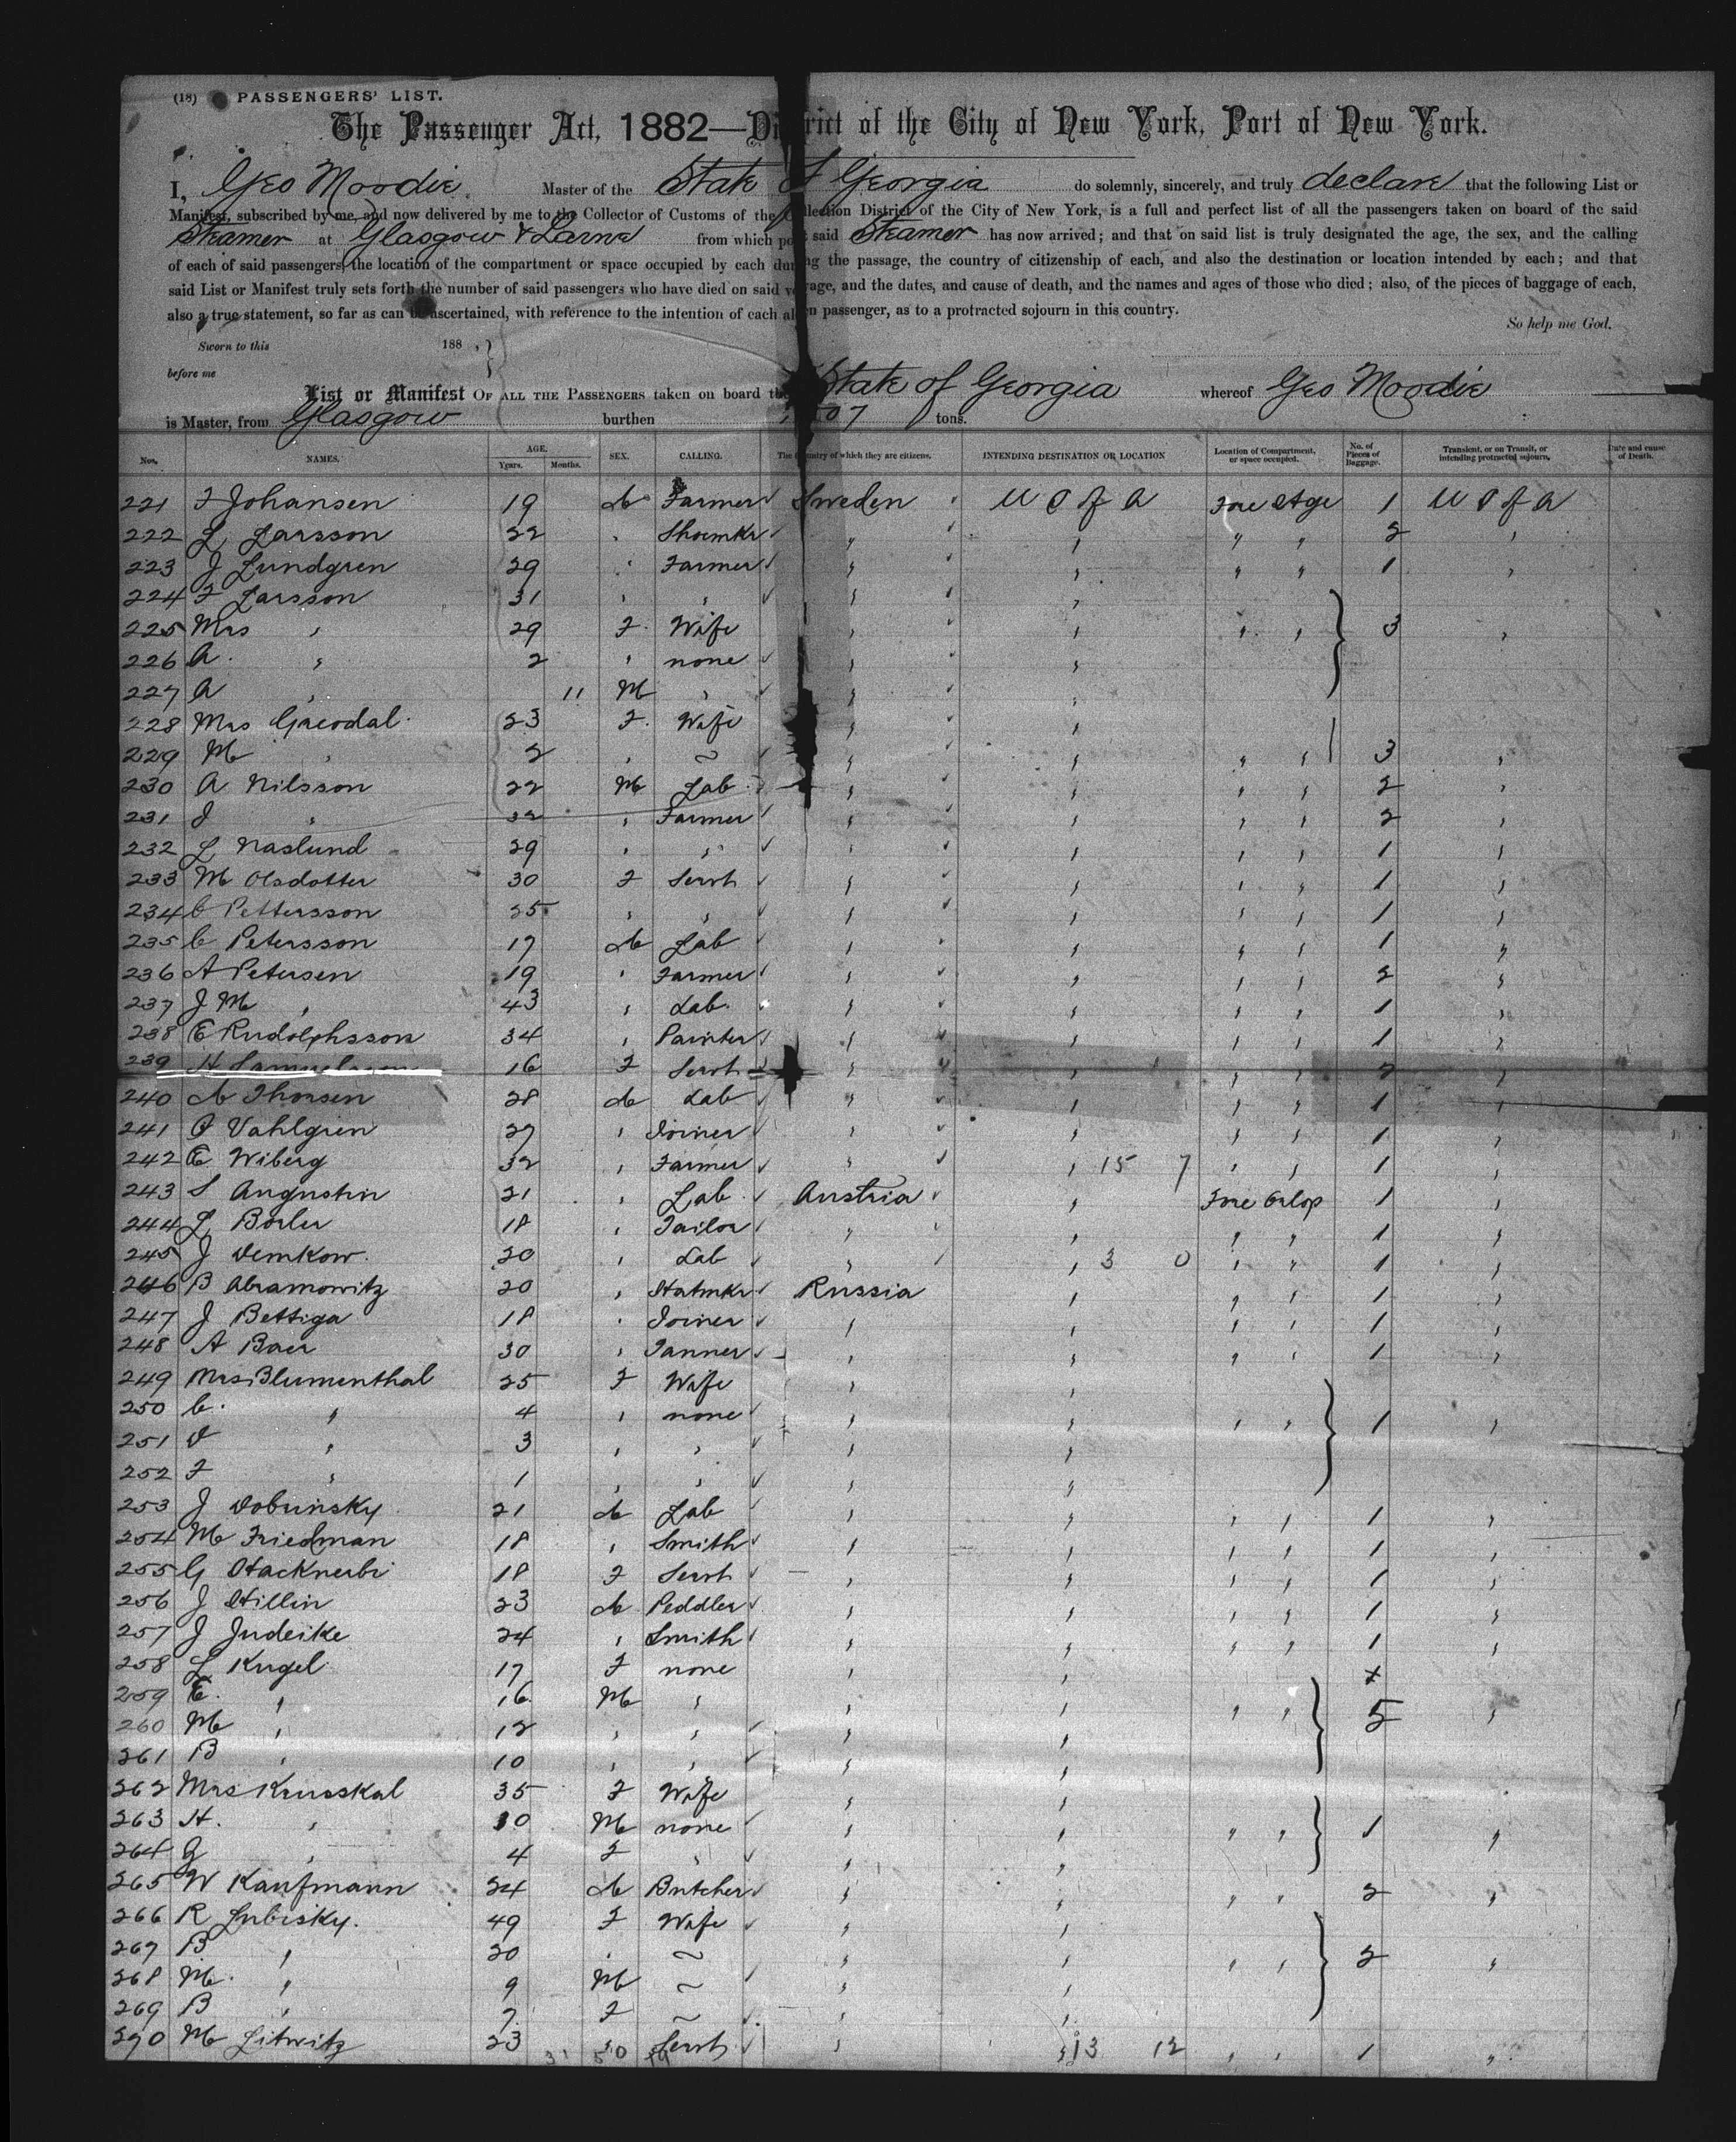 (18) PASSENGERS' LIST.
The Passenger Act, 1882—District of the City of New York, Port of New York.
I, Geo Moodie Master of the State of Georgia do solemnly, sincerely, and truly declare that the following List or
Manifest, subscribed by me, and now delivered by me to the Collector of Customs of the Collection District of the City of New York, is a full and perfect list of all the passengers taken on board of the said
Steamer at Glasgow & Larne from which port said Steamer has now arrived; and that on said list is truly designated the age, the sex, and the calling
of each of said passengers, the location of the compartment or space occupied by each during the passage, the country of citizenship of each, and also the destination or location intended by each; and that
said List or Manifest truly sets forth the number of said passengers who have died on said voyage, and the dates, and cause of death, and the names and ages of those who died; also, of the pieces of baggage of each,
also a true statement, so far as can be ascertained, with reference to the intention of each alien passenger, as to a protracted sojourn in this country.
So help me God.
Sworn to this 188 ,
before me
List or Manifest OF ALL THE PASSENGERS taken on board the State of Georgia whereof Geo Moodie
is Master, from Glasgow burthen tons.
Nos. NAMES. AGE. Years. Months. SEX. CALLING. The Country of which they are citizens. INTENDING DESTINATION OR LOCATION Location of Compartment, or space occupied. No. of Pieces of Baggage. Transient, or on Transit, or intending protracted sojourn. Date and cause of Death.
221 F Johansen 19 M Farmer Sweden U S of A Fore Stge 1 U S of A
222 L Larsson 22 " Shoemkr " " " " 2 "
223 J Lundgren 29 " Farmer " " " " 1 "
224 F Larsson 31 " " " "
225 Mrs " 29 F. Wife " " " " 3 "
226 A. " 2 " none " "
227 A " 11 M " " "
228 Mrs 23 F. Wife " "
229 M " 2 " ~ " " " " 3 "
230 A Nilsson 22 M Lab " " " " 2 "
231 J " 32 " Farmer " " " " 2 "
232 L Naslund 29 " " " " " " 1 "
233 M Olsdotter 30 F Servt " " " " 1 "
234 C Pettersson 25 " " " " " " 1 "
235 C Petersson 17 M Lab " " " " 1 "
236 A Petersen 19 " Farmer " " " " 2 "
237 J M " 43 " Lab. " " " " 1 "
238 E Rudolphsson 34 " Painter " " " " 1 "
239 H Samuelsson 16 F Servt " " " " 2 "
240 M Thorsen 28 M Lab " " " " 1 "
241 O Vahlgren 27 " Joiner " " " " 1 "
242 E Wiberg 32 " Farmer " " 15 7 " " 1 "
243 S Augustin 21 " Lab Austria " Fore Orlop 1 "
244 L Borler 18 " Tailor " " " " 1 "
245 J Demkow. 20 " Lab " " 3 0 " " 1 "
246 B Abramowitz 20 " Hatmkr Russia " " " 1 "
247 J Bettiga 18 " Joiner " " " " 1 "
248 A Baer 30 " Tanner " " " " 1 "
249 Mrs Blumenthal 25 F Wife " "
250 C. " 4 " none " " " " 1 "
251 D " 3 " " " "
252 F " 1 " " " "
253 J Dobrinsky 21 M Lab " " " " 1 "
254 M Friedman 18 " Smith " " " " 1 "
255 G 18 F Servt " " " " 1 "
256 J Hillin 23 M Peddler " " " " 1 "
257 J Judeike 24 " Smith " " " " 1 "
258 L Kugel 17 F none " " x
259 E. " 16 M " " " " " 5 "
260 M " 12 " " " "
261 B " 10 " " " "
262 Mrs Krusskal 35 F Wife " "
263 H. " 10 M none " " " " 1 "
264 G " 4 F " " "
265 W Kaufmann 24 M Butcher " " " " 2 "
266 R Lubisky. 49 F Wife " "
267 B " 20 " ~ " " " " 2 "
268 M. " 9 M ~ " "
269 B " 7 F ~ " "
270 M Litwitz 23 " Servt " " 13 12 " " 1 "